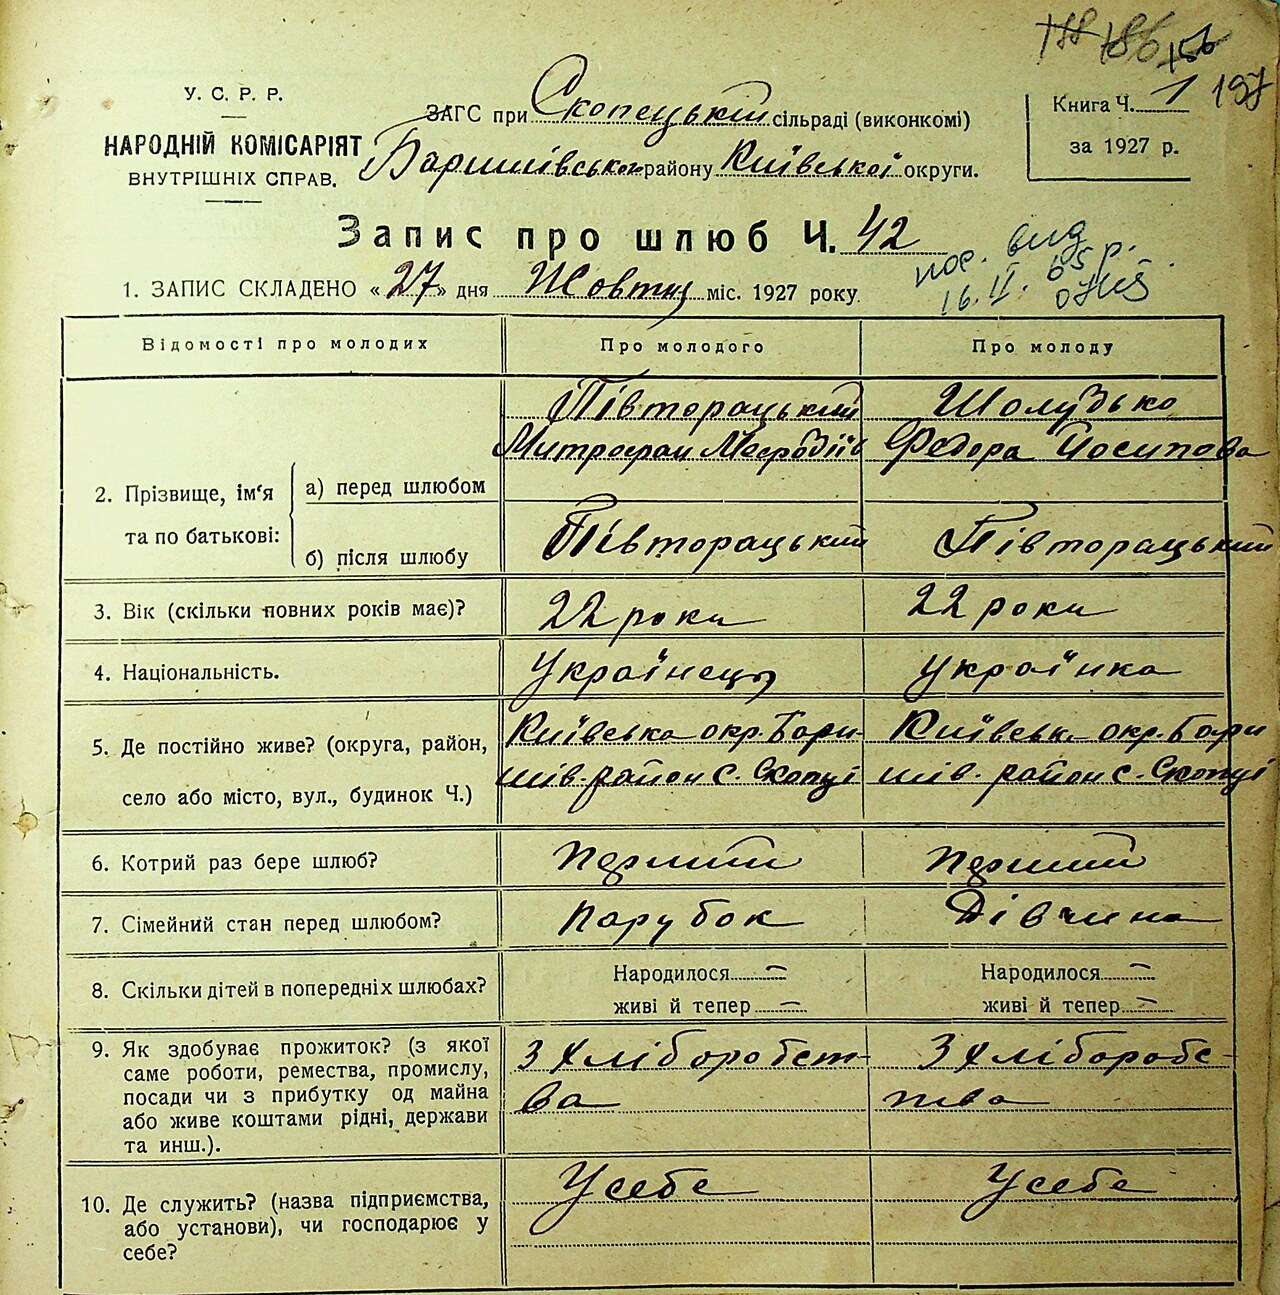 156
197
У. С. Р. Р.
НАРОДНІЙ КОМІСАРІЯТ
ВНУТРІШНІХ СПРАВ.
ЗАГС при Скопецькій сільраді (виконкомі)
Баришівського району Київської округи.
Книга Ч. 1
за 1927 р.
Запис про шлюб Ч. 42
1. ЗАПИС СКЛАДЕНО «27» дня Жовтня міс. 1927 року.
пос. вид
16. II. 65 р.
Відомості про молодих Про молодого Про молоду
Півторацький Шолудько
Митрофан Мефодіїв Федора Йосипова
2. Прізвище, ім'я та по батькові:
а) перед шлюбом
б) після шлюбу Півторацький Півторацький
3. Вік (скільки повних років має)? 22 роки 22 роки
4. Національність. Українець Українка
5. Де постійно живе? (округа, район, Київська окр. Бари- Київська окр. Бари
село або місто, вул., будинок Ч.) шів. район с. Скопці шів. район с. Скопці
6. Котрий раз бере шлюб? Перший Перший
7. Сімейний стан перед шлюбом? Парубок Дівчина
8. Скільки дітей в попередніх шлюбах? Народилося — Народилося —
живі й тепер — живі й тепер —
9. Як здобуває прожиток? (з якої З хліборобст- З хліборобс-
саме роботи, ремества, промислу, ва тва
посади чи з прибутку од майна
або живе коштами рідні, держави
та инш.).
10. Де служить? (назва підприємства, У себе У себе
або установи), чи господарює у
себе?